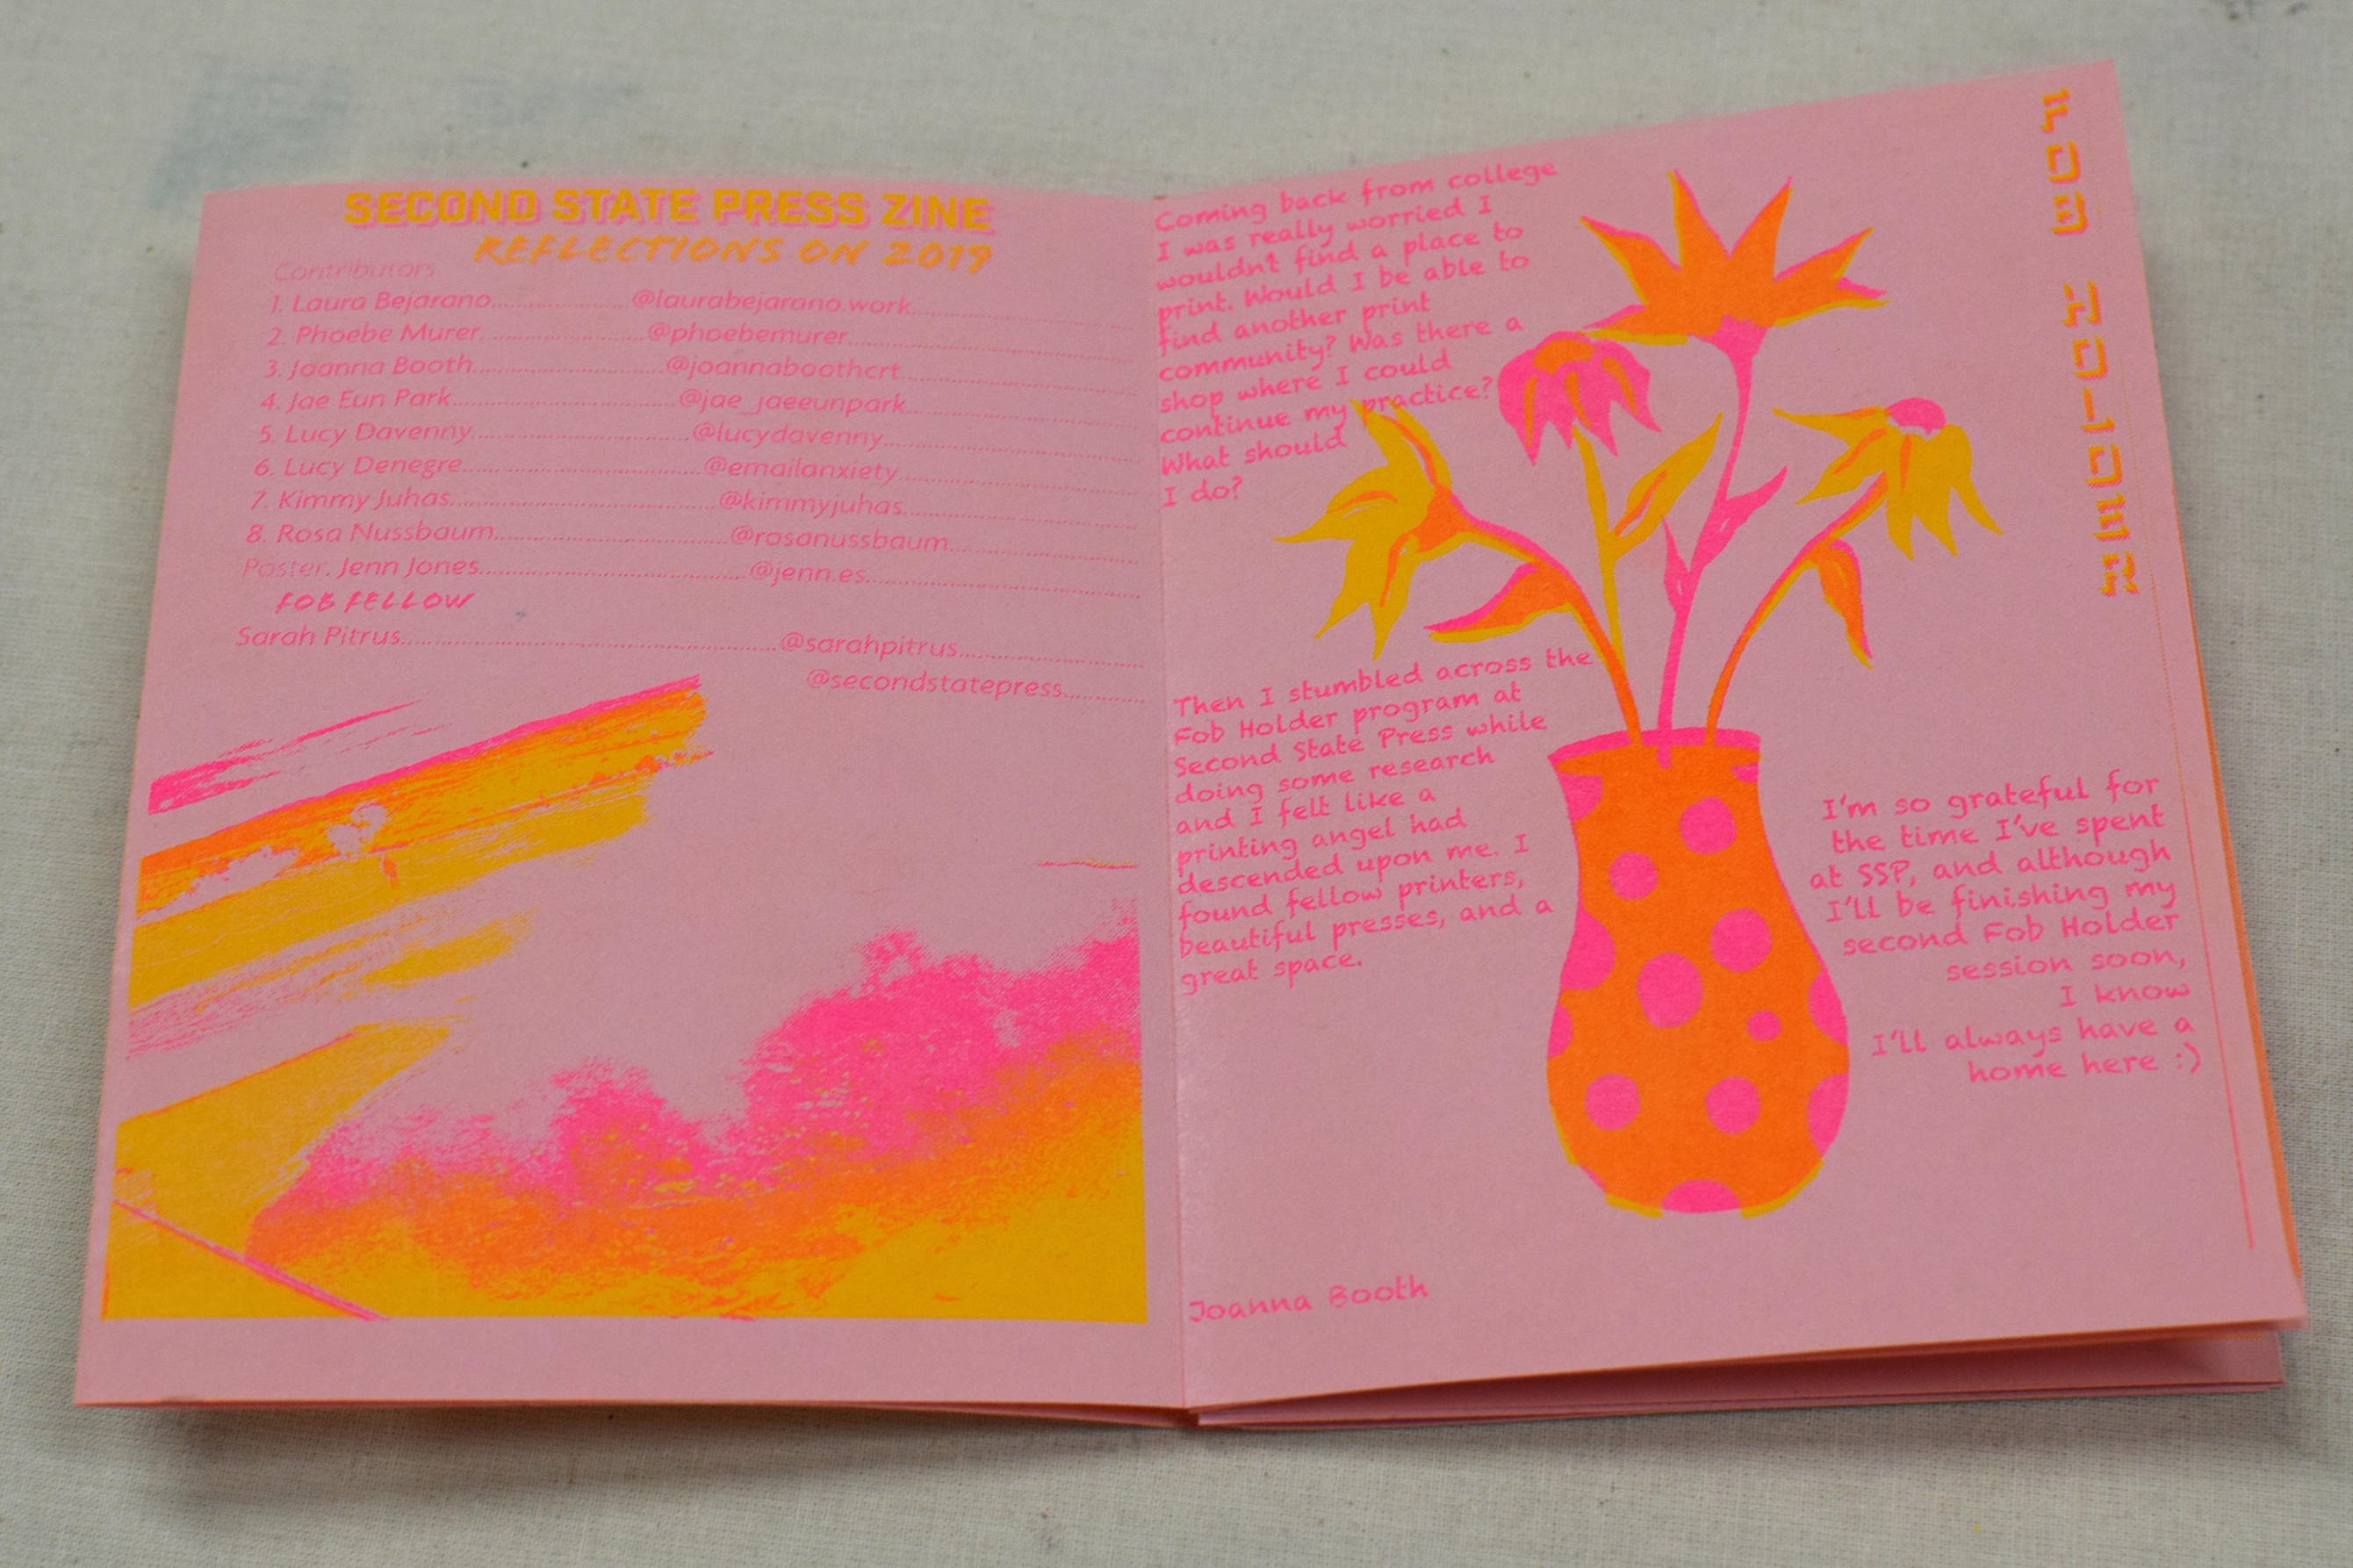 SECOND STATE PRESS ZINE
REFLECTIONS ON 2019
Contributors
1. Laura Bejarano....................@laurabejarano.work....................
2. Phoebe Murer....................@phoebemurer....................
3. Joanna Booth....................@joannaboothcrt....................
4. Jae Eun Park....................@jae_jaeeunpark....................
5. Lucy Davenny....................@lucydavenny....................
6. Lucy Denegre....................@emailanxiety....................
7. Kimmy Juhas....................@kimmyjuhas....................
8. Rosa Nussbaum....................@rosanussbaum....................
Poster. Jenn Jones....................@jenn.es....................
FOB FELLOW
Sarah Pitrus....................@sarahpitrus....................
@secondstatepress..........
FOB HOLDER
Coming back from college
I was really worried I
wouldn't find a place to
print. Would I be able to
find another print
community? Was there a
shop where I could
continue my practice?
What should
I do?
Then I stumbled across the
Fob Holder program at
Second State Press while
doing some research
and I felt like a
printing angel had
descended upon me. I
found fellow printers,
beautiful presses, and a
great space.
I'm so grateful for
the time I've spent
at SSP, and although
I'll be finishing my
second Fob Holder
session soon,
I know
I'll always have a
home here :)
Joanna Booth